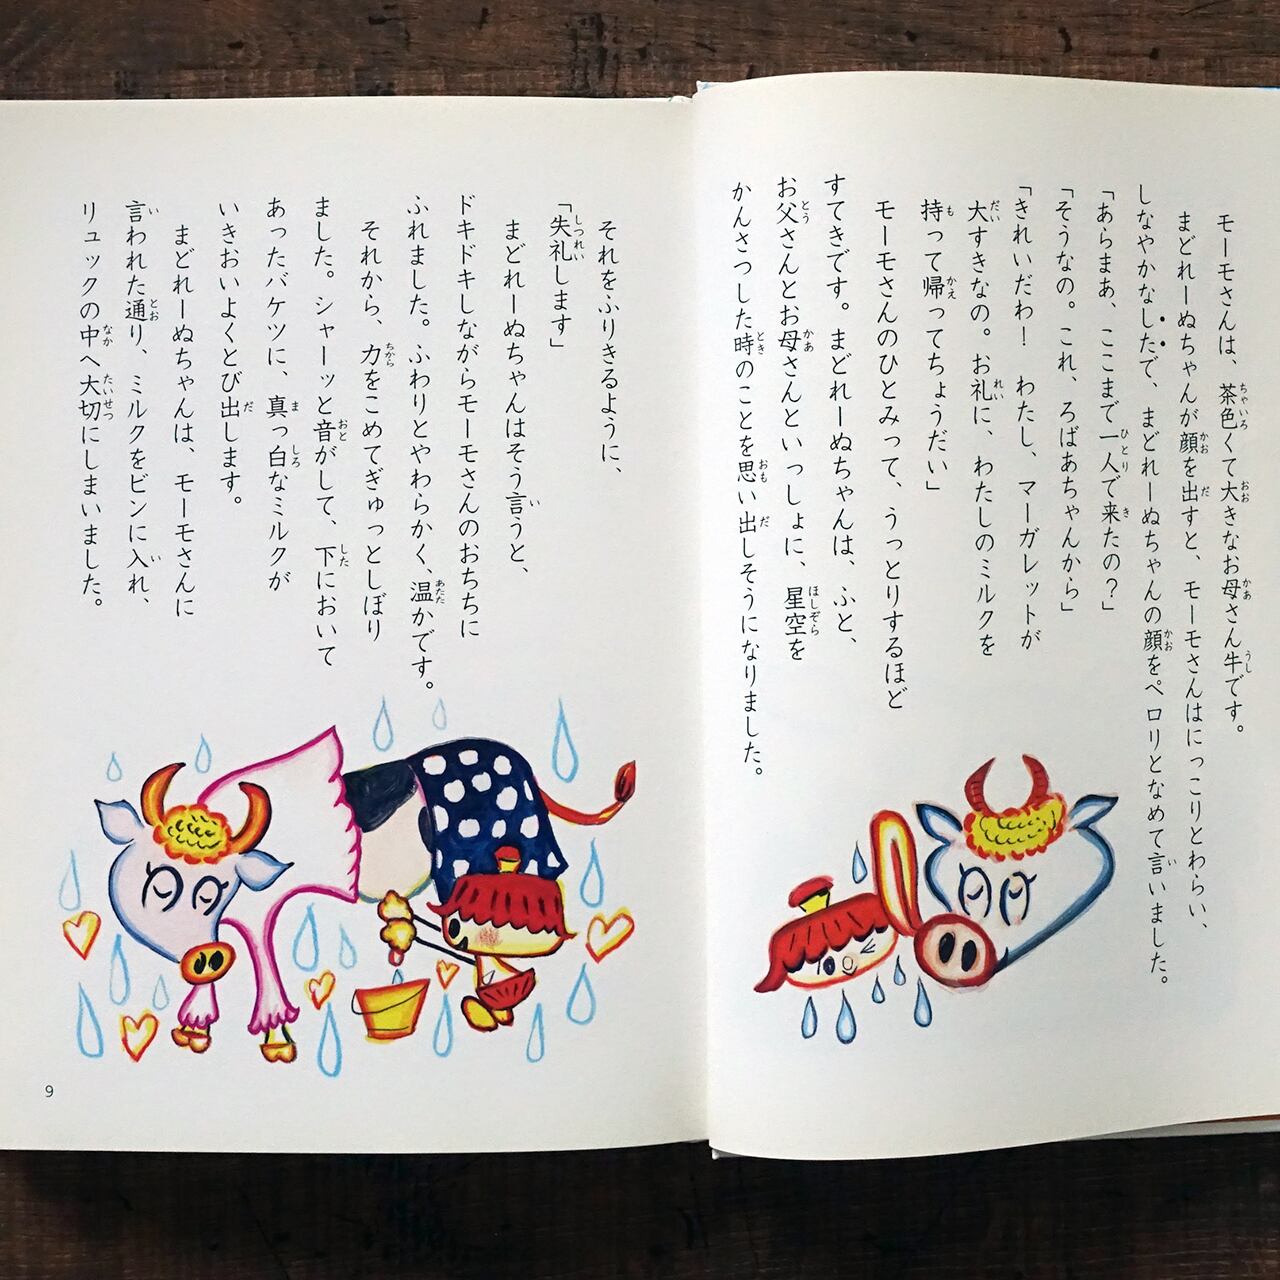 モーモさんは、茶色くて大きなお母さん牛です。
まどれーぬちゃんが顔を出すと、モーモさんはにっこりとわらい、
しなやかなしたで、まどれーぬちゃんの顔をペロリとなめて言いました。
「あらまあ、ここまで一人で来たの？」
「そうなの。これ、ろばあちゃんから」
「きれいだわ！　わたし、マーガレットが
大すきなの。お礼に、わたしのミルクを
持って帰ってちょうだい」
モーモさんのひとみって、うっとりするほど
すてきです。まどれーぬちゃんは、ふと、
お父さんとお母さんといっしょに、星空を
かんさつした時のことを思い出しそうになりました。
それをふりきるように、
「失礼します」
まどれーぬちゃんはそう言うと、
ドキドキしながらモーモさんのおちちに
ふれました。ふわりとやわらかく、温かです。
それから、力をこめてぎゅっとしぼり
ました。シャーッと音がして、下において
あったバケツに、真っ白なミルクが
いきおいよくとび出します。
まどれーぬちゃんは、モーモさんに
言われた通り、ミルクをビンに入れ、
リュックの中へ大切にしまいました。
9